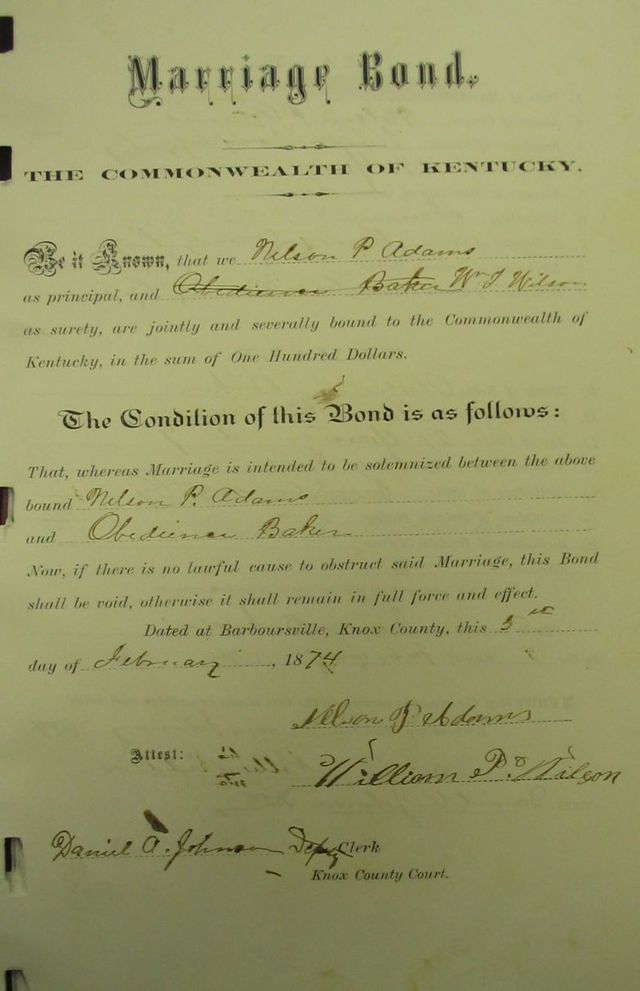 Marriage Bond.
THE COMMONWEALTH OF KENTUCKY.
Be it Known, that we Nelson P Adams
as principal, and Obedience Baker Wm Wilson
as surety, are jointly and severally bound to the Commonwealth of
Kentucky, in the sum of One Hundred Dollars.
The Condition of this Bond is as follows:
That, whereas Marriage is intended to be solemnized between the above
bound Nelson P. Adams
and Obedience Baker
Now, if there is no lawful cause to obstruct said Marriage, this Bond
shall be void, otherwise it shall remain in full force and effect.
Dated at Barboursville, Knox County, this 3
day of February, 1874
Nelson P. Adams
Attest:
William P. Wilson
Daniel A. Johnson Depy Clerk
Knox County Court.